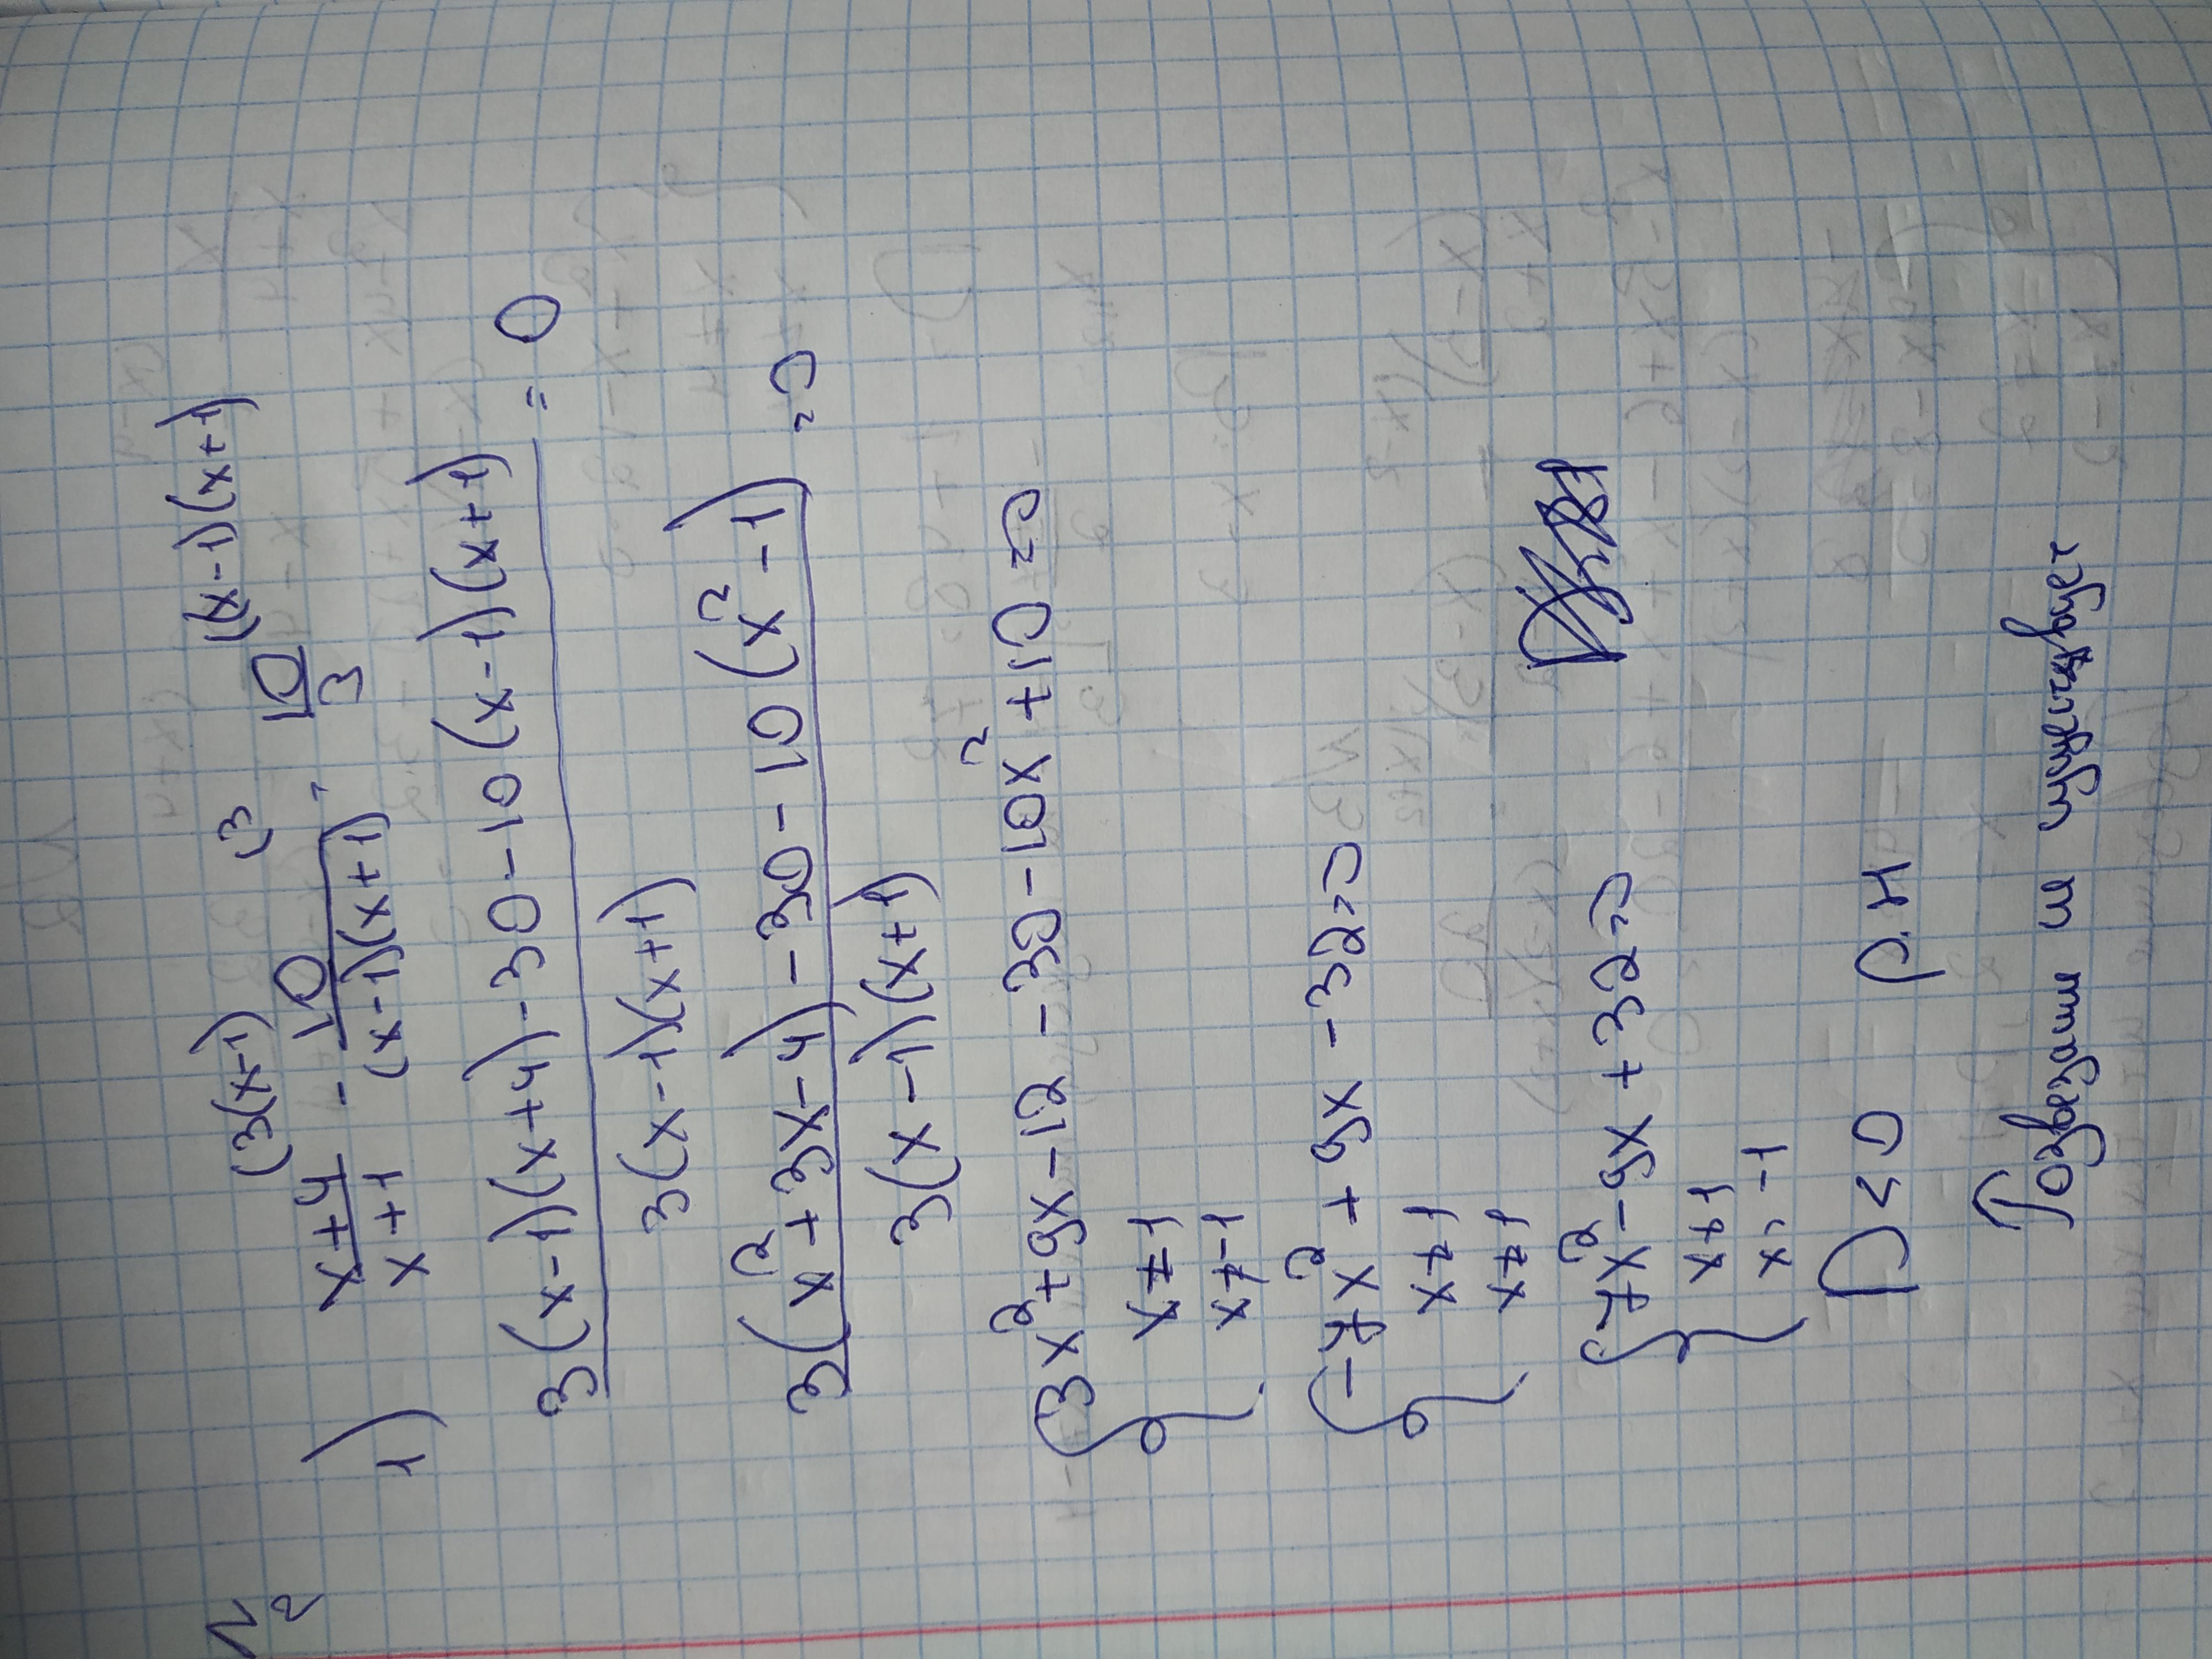 N2
1) (x+4)/(x+1) (3(x-1) - 10/((x-1)(x+1)) (3 - 10/3 ((x-1)(x+1)
(3(x-1)(x+4)-30-10(x-1)(x+1))/(3(x-1)(x+1)) = 0
(3(x²+3x-4)-30-10(x²-1))/(3(x-1)(x+1)) = 0
{3x²+9x-12-30-10x²+10=0
x≠1
x≠-1
{-7x²+9x-32=0
x≠1
x≠1
{7x²-9x+32=0
x≠1
x≠-1
D<0 р.н